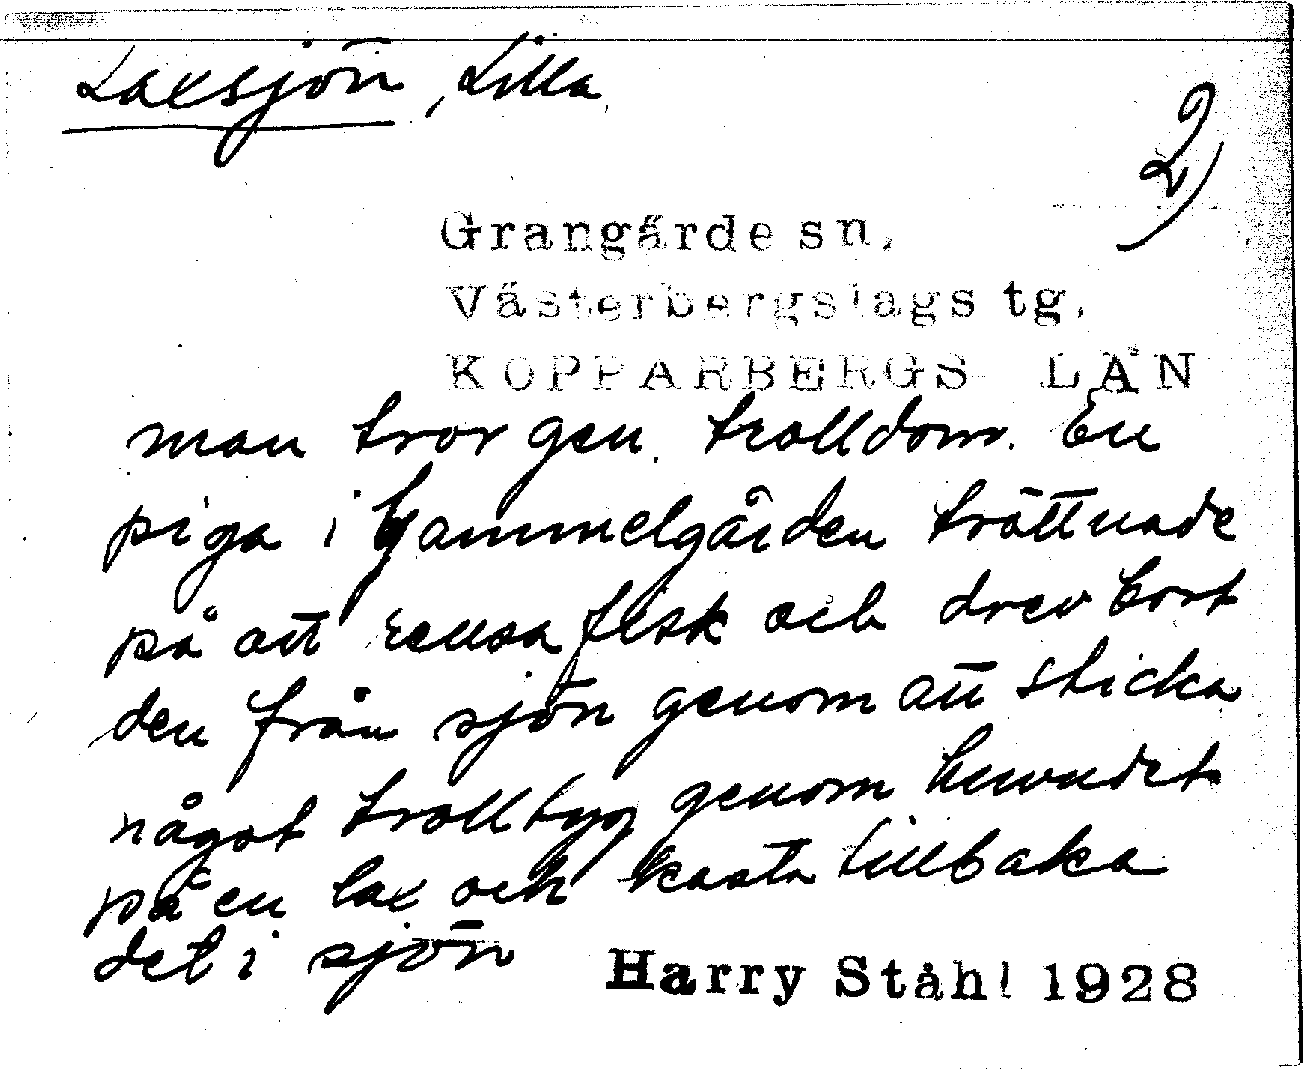 Laxsjön, Lilla
2)
Grangärde sn.
Västerbergslags tg.
KOPPARBERGS LÄN
man tror gen. trolldom. En
piga i Gammelgården tröttnade
på att rensa fisk och drev bort
den från sjön genom att sticka
något trolltyg genom huvudet
på en lax och kasta tillbaka
det i sjön
Harry Ståhl 1928